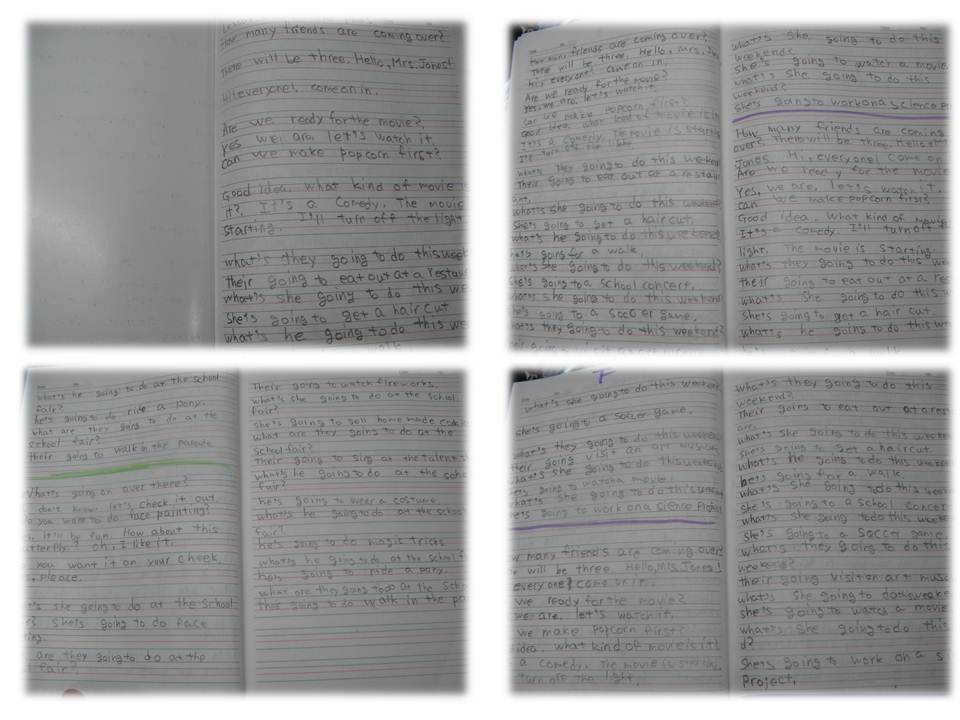 How many friends are coming over?
There will be three. Hello, Mrs. Jones!
Hi! everyone!, come on in.
Are we ready for the movie?.
yes we, are, let's watch it.
can we make popcorn first?
Good idea. what kind of movie is
it?. It's a Comedy, The movie
I'll turn off the light
starting.
what's they going to do this week
their going to eat out at a restau
what's she going to do this we
She's going to get a haircut
what's he going to do this we
How many friends are coming over?
There will be three. Hello, Mrs.
Hi, everyone! come on in.
Are we ready for the movie?
Yes, we are, let's watch it.
Can we make popcorn first?
Good idea. what kind of movie is it
It's a comedy. The movie is starti
I'll turn off the
what's they going to do this weeken
Their going to eat out at a restau
ant,
what's she going to do this weekend
She's going to get a haircut,
what's he going to do this weekend
he's going for a walk,
what's she going to do this weekend?
She's going to a School concert,
what's she going to do this weekend
he's going To a soccer game,
what's they going to do this weekend?
what's she going to do this
weekend?
She's going to watch a movie
what's she going to do this
weekend?
She's going to work on a science p
How many friends are coming
over? There will be three. Hello
Jones. Hi, everyone! come on
Are we ready for the movie
Yes, we are, let's watch it.
can we make popcorn first?
Good idea. What kind of movie
It's a comedy I'll turn off t
light. The movie is starting.
what's they going to do this wee
their going to eat out at a res
what's she going to do this
She's going to get a hair cut,
what's he going to do this we
what's he going to do at the school
fair?
he's going to do ride a pony.
what are they going to do at the
school fair?
their going to walk in the parade
What's going on over there?
don't know. let's check it out.
do you want to do face painting?
, it'll be fun. How about this
tterfly? oh, I like it.
you want it on your cheek,
, Please.
t's she going to do at the school
r? she's going to do face
ing.
are they going to do at the
fair?
Their going to watch fireworks.
what's she going to do at the school
fair?
she's going to sell home made
what are they going to do at the
School fair?
Their going to sing at the talent
what's he going to do at the scho
fair?
he's going to wear a costume.
what's he going to do at the school
fair?
he's going to do magic tricks
what's he going to do at the school f
he's going to ride a pony.
what are they going to do at the Scho
their going to do walk in the pa
what's she going to do this weeken
she's going to a soccer game,
what's they going to do this weekend
their going visit an art museum
what's she going to do this weekend
he's going to watch a movie.
what's she going to do this weekend
he's going to work on a sience Project
w many friends are coming over
e will be three. Hello, Mrs, Jones!
everyone! come on in.
we ready for the movie?
we are, let's watch it.
we make popcorn first?
idea, what kind of movie is it?
a comedy. The movie is starting
turn off the light.
what's they going to do this
weekend?
Their going to eat out at a rest
what's she going to do this weeken
she's going to get a haircut.
what's he going to do this weeken
he's going for a walk,
what's she going to do this
she's going to a School concer
what's she going to do this week
She's going to a soccer game.
what's they going to do this
weekend?
their going visit an art muse
what's she going to do this weeke
she's going to watch a movie
what's she going to do this
d?
She's going to work on a s
Project,